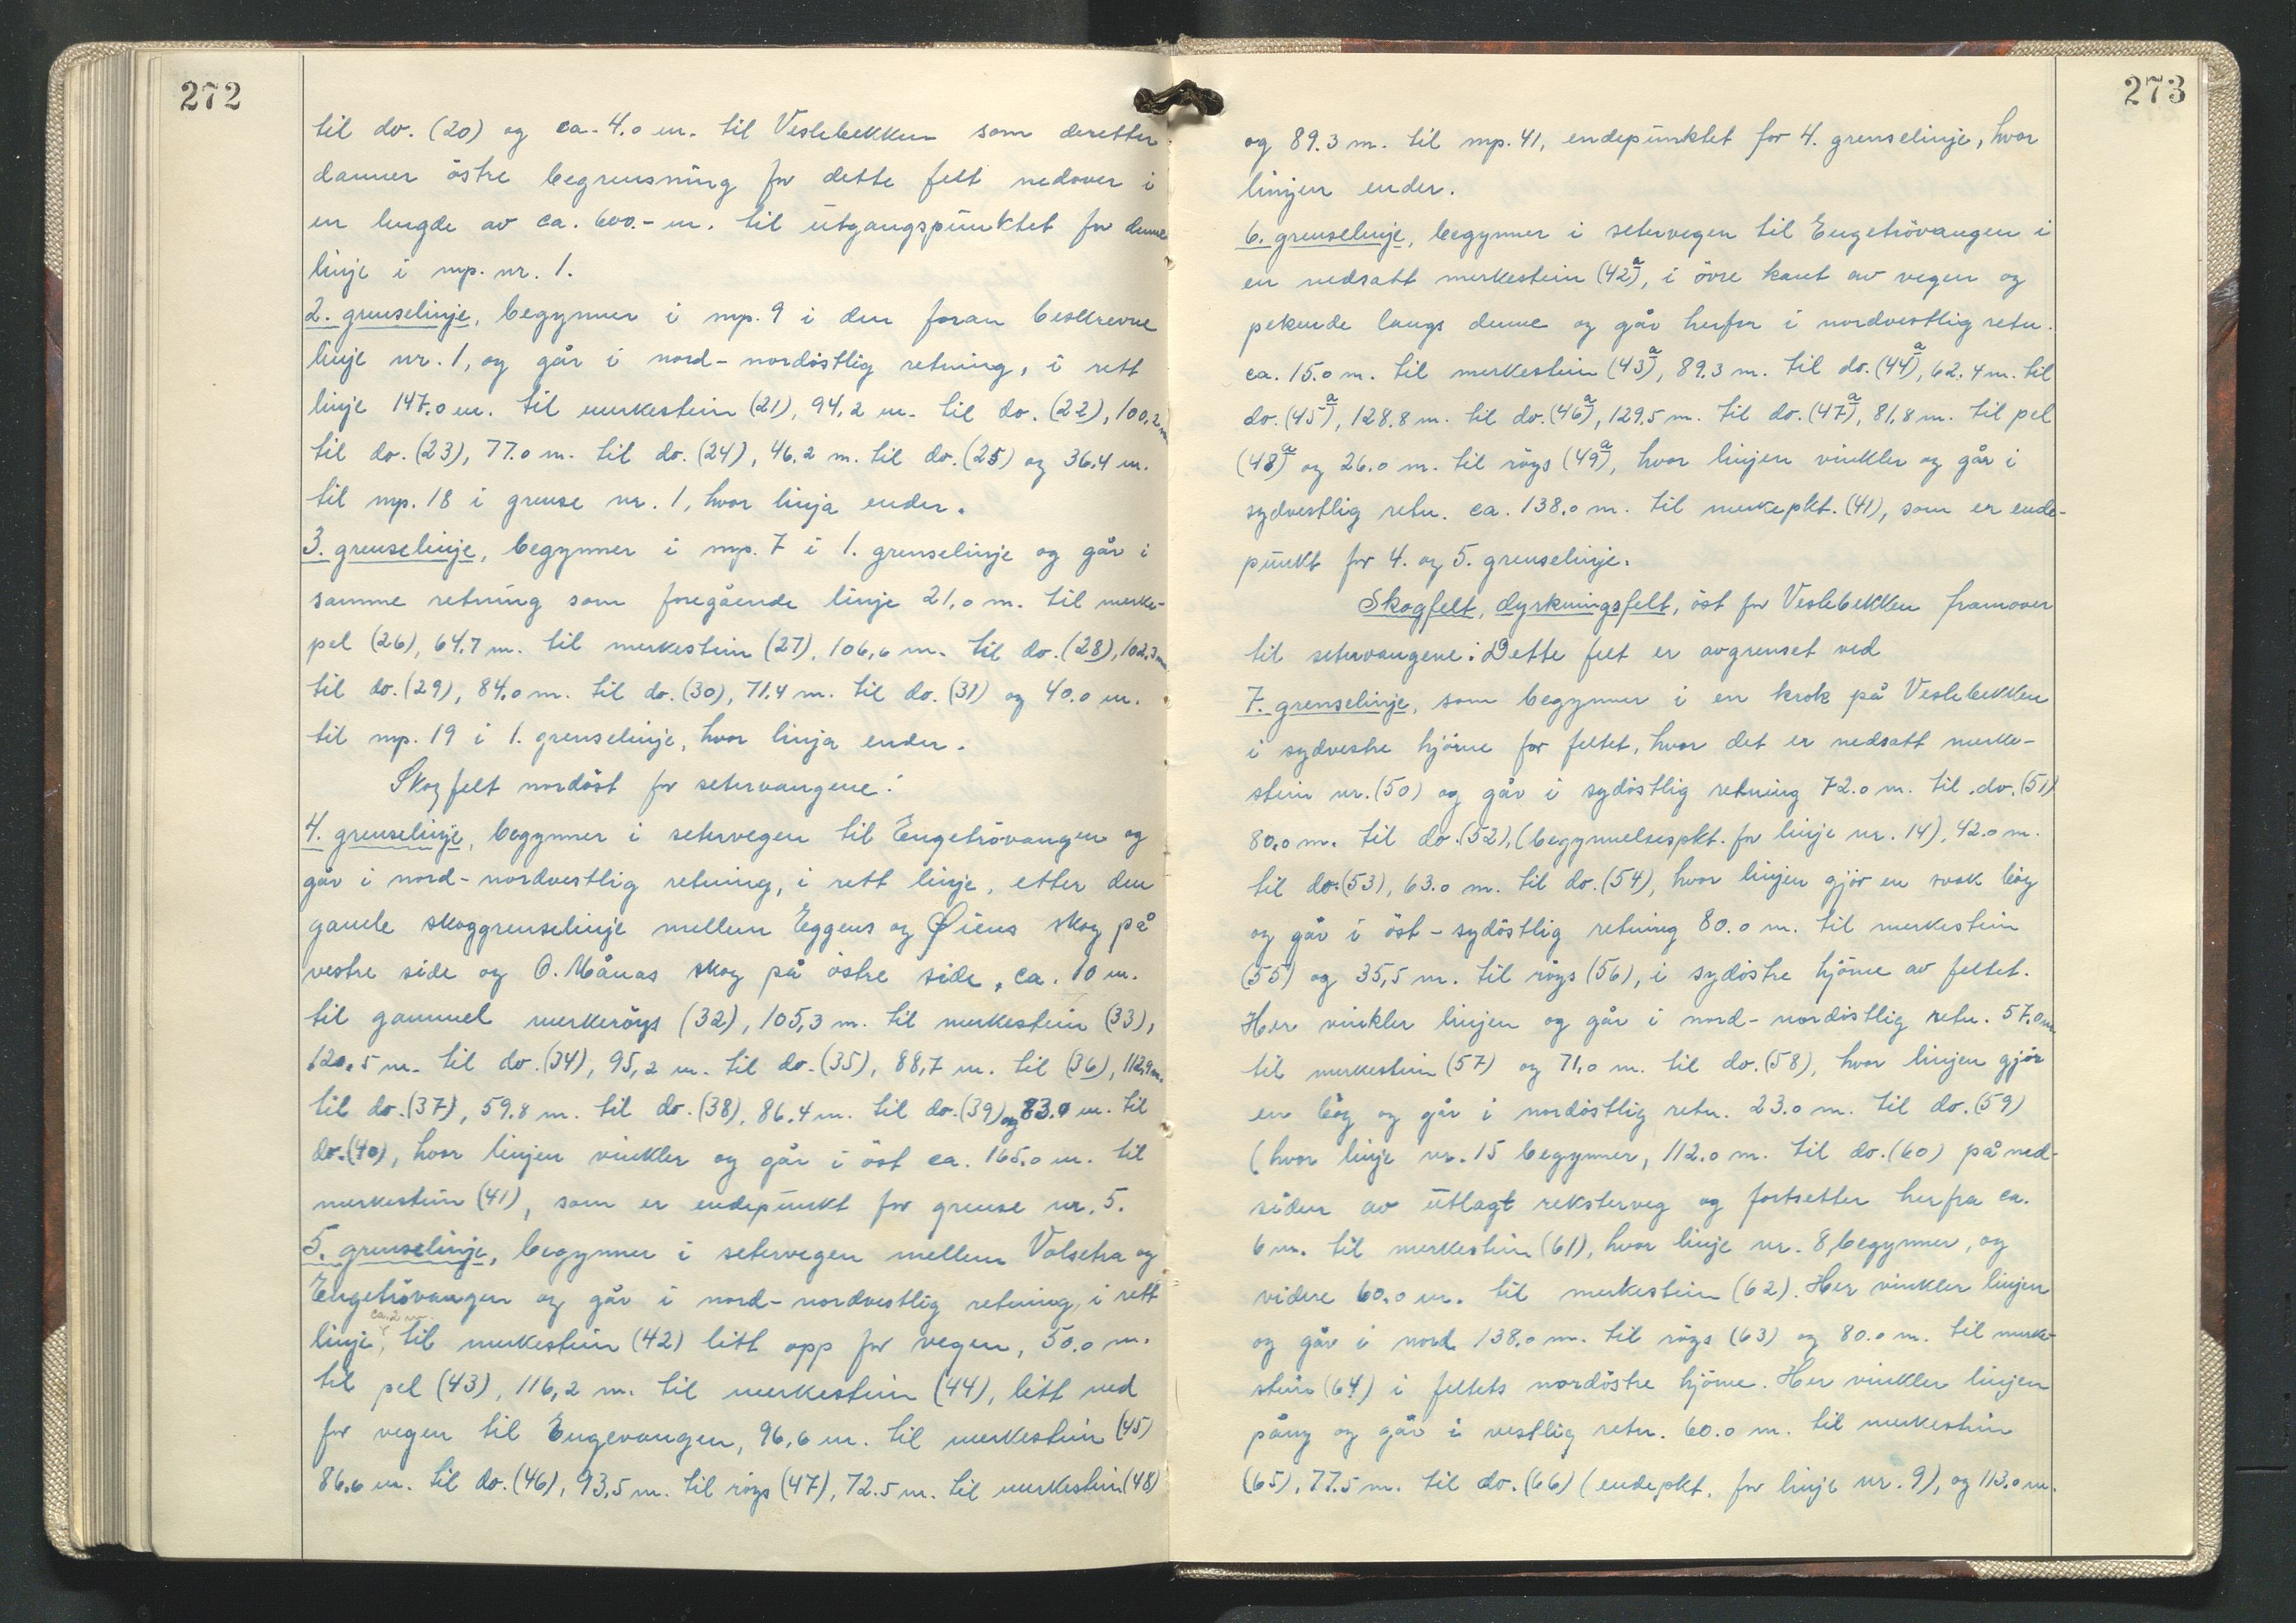 272
til do. (20) og ca. 4.0 m. til Veslebekken som deretter
danner östre begrensning for dette felt nedover i
en lengde av ca. 600.- m. til utgangspunktet for denne
linje i mp. nr. 1.
2. grenselinje, begynner i mp. 9 i den foran beskrevne
linje nr. 1, og går i nord-nordöstlig retning, i rett
linje 147.0 m. til merkestein (21), 94,2 m. til do. (22), 100,2 m
til do. (23), 77.0 m. til do. (24), 46.2 m. til do. (25) og 36.4 m.
til mp. 18 i grense nr. 1, hvor linja ender.
3. grenselinje, begynner i mp. 7 i 1. grenselinje og går i
samme retning som foregående linje 21,0 m. til merke-
pel (26), 64,7 m. til merkestein (27), 106,6 m. til do. (28), 102,3 m
til do. (29), 84,0 m. til do. (30), 71.4 m. til do. (31) og 40.0 m.
til mp. 19 i 1. grenselinje, hvor linja ender.
Skogfelt nordöst for setervangene:
4. grenselinje, begynner i setervegen til Engetrövangen og
går i nord-nordvestlig retning, i rett linje, etter den
gamle skoggrenselinje mellem Eggens og Øiens skog på
vestre side og O. Månas skog på östre side, ca. 10 m.
til gammel merkeröys (32), 105,3 m. til merkestein (33),
120,5 m. til do. (34), 95,2 m. til do. (35), 88,7 m. til (36), 112,9 m.
til do. (37), 59.8 m. til do. (38), 86.4 m. til do. (39) og 83.0 m. til
do. (40), hvor linjen vinkler og går i öst ca. 165,0 m. til
merkestein (41), som er endepunkt for grense nr. 5.
5. grenselinje, begynner i setervegen mellem Volsetra og
Engetrövangen og går i nord-nordvestlig retning, i rett
ca. 2 m.
linje, til merkestein (42) litt opp for vegen, 50.0 m.
til pel (43), 116,2 m. til merkestein (44), litt ned
for vegen til Engevangen, 96,6 m. til merkestein (45)
86,6 m. til do. (46), 93,5 m. til röys (47), 72.5 m. til merkestein (48)
273
og 89.3 m. til mp. 41, endepunktet for 4. grenselinje, hvor
linjen ender.
6. grenselinje, begynner i setervegen til Engetrövangen i
en nedsatt merkestein (42a), i övre kant av vegen og
pekende langs denne og går herfor i nordvestlig retn.
ca. 15.0 m. til merkestein (43a), 89.3 m. til do. (44a), 62.4 m. til
do. (45a), 128.8 m. til do. (46a), 129.5 m. til do. (47a), 81,8 m. til pel
(48a) og 26.0 m. til röys (49a), hvor linjen vinkler og går i
sydvestlig retn. ca. 138.0 m. til merkepkt. (41), som er ende-
punkt for 4. og 5. grenselinje.
Skogfelt, dyrkningsfelt, öst for Veslebekken framover
til setervangene: Dette felt er avgrenset ved
7. grenselinje, som begynner i en krok på Veslebekken
i sydvestre hjörne for feltet, hvor det er nedsatt merke-
stein nr. (50) og går i sydöstlig retning 72.0 m. til do. (51)
80.0 m. til do. (52), (begynnelsespkt. for linje nr. 14), 42.0 m.
til do. (53), 63.0 m. til do. (54), hvor linjen gjör en svak böy
og går i öst-sydöstlig retning 80.0 m. til merkestein
(55) og 35,5 m. til röys (56), i sydöstre hjörne av feltet.
Her vinkler linjen og går i nord-nordöstlig retn. 57,0 m
til merkestein (57) og 71,0 m. til do. (58), hvor linjen gjör
en böy og går i nordöstlig retn. 23.0 m. til do. (59)
(hvor linje nr. 15 begynner, 112.0 m. til do. (60) på ned-
siden av utlagt reksterveg og fortsetter herfra ca.
6 m. til merkestein (61), hvor linje nr. 8 begynner, og
videre 60.0 m. til merkestein (62). Her vinkler linjen
og går i nord 138.0 m. til röys (63) og 80.0 m. til merke-
stein (64) i feltets nordöstre hjörne. Her vinkler linjen
påny og går i vestlig retn. 60.0 m. til merkestein
(65), 77.5 m. til do. (66) (endepkt. for linje nr. 9), og 113.0 m.